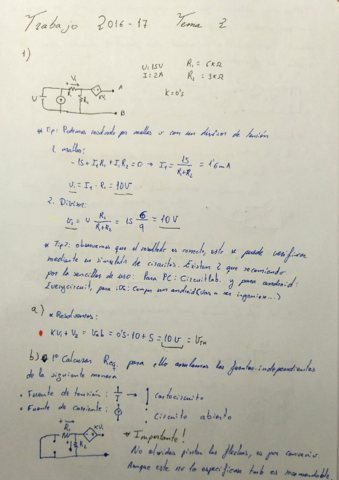 Trabajo 2016-17 Tema 2
1)
V=15V R₁ = 6kΩ
I=2A R₂ = 3kΩ
K=0'5
V₁
V R₁ R₂ KV₁ A
B
* Tip: Podemos resolverlo por mallas o con un divisor de tensión
1. mallas:
-15+I₁R₁+I₁R₂=0 → I₁ = 15/R₁+R₂ = 1'6mA
V₁ = I₁ · R₁ = 10V
2. Divisor:
V₁ = V R₁/R₁+R₂ = 15 6/9 = 10V
* Tip2: observemos que el resultado es correcto, esto se puede verificar
mediante un simulador de circuitos. Existen 2 que recomiendo
por lo sencillos de uso: Para PC: Circuitlab. y para android:
Everycircuit, para iOS: compra un android
a.) * Resolvemos:
KV₁ + V₂ = Vab = 0'5·10+5 = 10V = VTH
b) 1º Calculas Req. para ello anulamos las fuentes independientes
de la siguiente manera
· Fuente de tensión: → cortocircuito
· Fuente de corriente: circuito abierto
* Importante!
No olvidar pintar las flechas, es por convenio
Aunque este no lo especifican tamb es recomendable